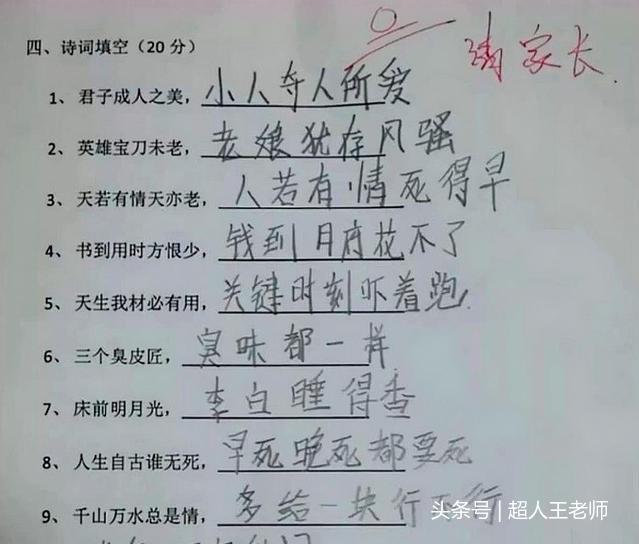 四、诗词填空（20 分） 0 请家长.
1、 君子成人之美，小人夺人所爱
2、 英雄宝刀未老，老娘犹存风骚
3、 天若有情天亦老，人若有情死得早
4、 书到用时方恨少，钱到月府花不了
5、 天生我材必有用，关键时刻吓着跑
6、 三个臭皮匠，臭味都一样
7、 床前明月光，李白睡得香
8、 人生自古谁无死，早死晚死都要死
9、 千山万水总是情，多给一块行不行
头条号 | 超人王老师